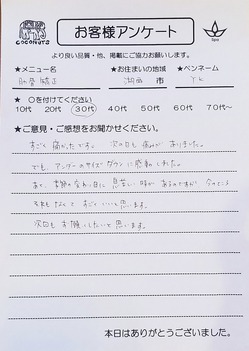 COCONUTS
お客様アンケート
より良い品質・他、掲載にご協力お願いします。
★メニュー名 ★お住まいの地域 ★ペンネーム
肋骨矯正 湖西 市 T.K
★ ○を付けてください
10代 20代 30代 40代 50代 60代 70代～
★ご意見・ご感想をお聞かせください。
すごく痛かったです。次の日も痛みがありました。
でも、アンダーのサイズダウンに感動しました。
あと、季節の変わり目に息苦しい時があるのですが 今のところ
それもなくて すごくいいと思います。
次回もお願いしたいと思います。
本日はありがとうございました。